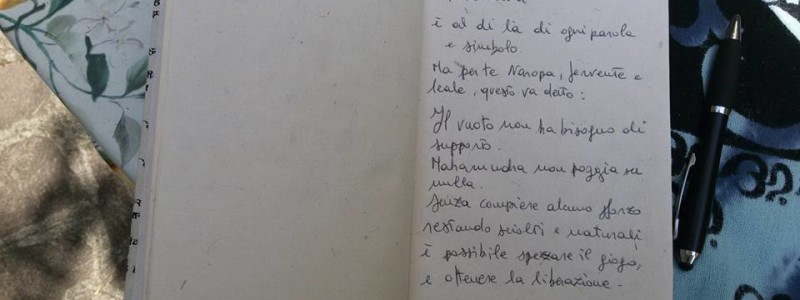 è al di là di ogni parola
e simbolo.
Ma per te Naropa, fervente e
leale, questo va detto:
Il vuoto non ha bisogno di
supporto.
Mahamudra non poggia su
nulla.
Senza compiere alcuno sforzo
restando sciolti e naturali
è possibile spezzare il giogo,
e ottenere la liberazione-